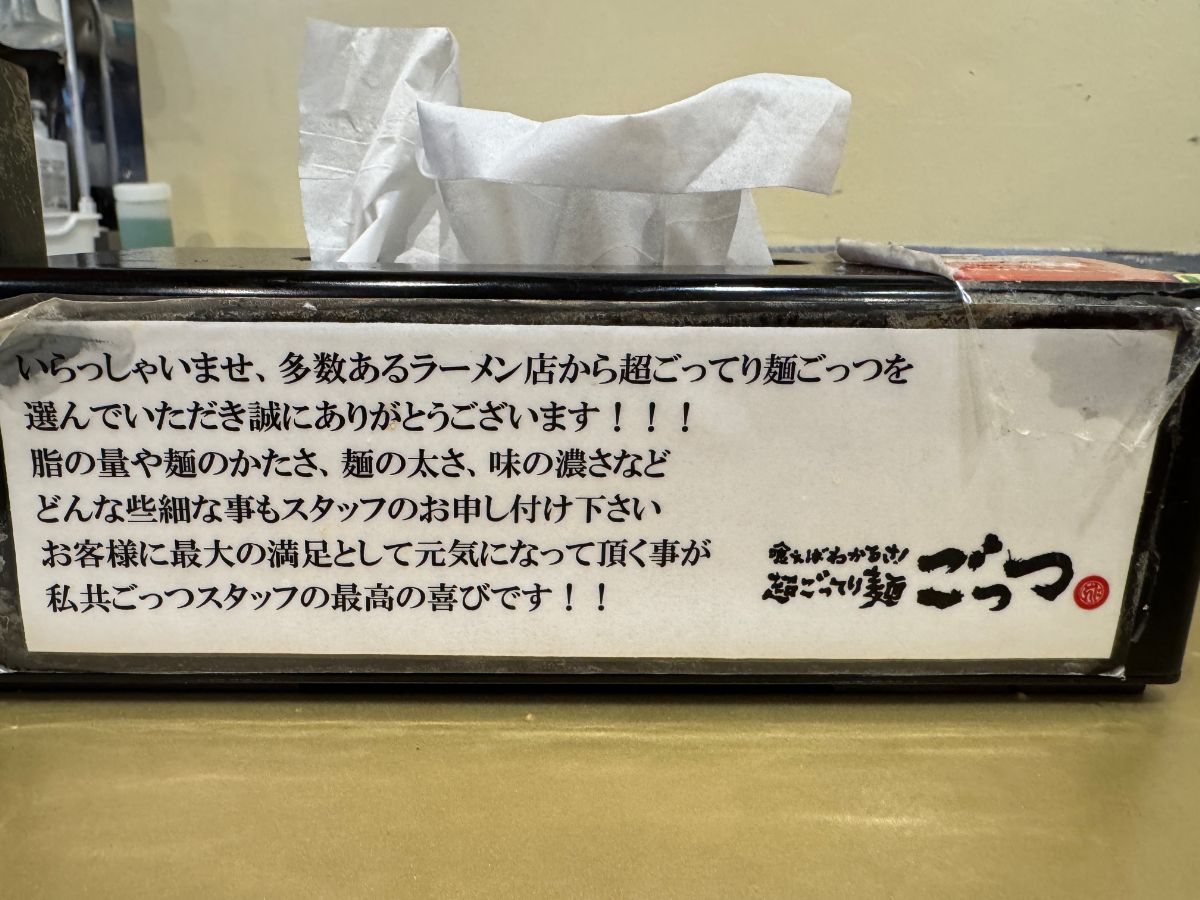 いらっしゃいませ、多数あるラーメン店から超ごってり麺ごっつを
選んでいただき誠にありがとうございます！！！
脂の量や麺のかたさ、麺の太さ、味の濃さなど
どんな些細な事もスタッフのお申し付け下さい
お客様に最大の満足として元気になって頂く事が
私共ごっつスタッフの最高の喜びです！！
喰えばわかるさ！
超ごってり麺 ごっつ